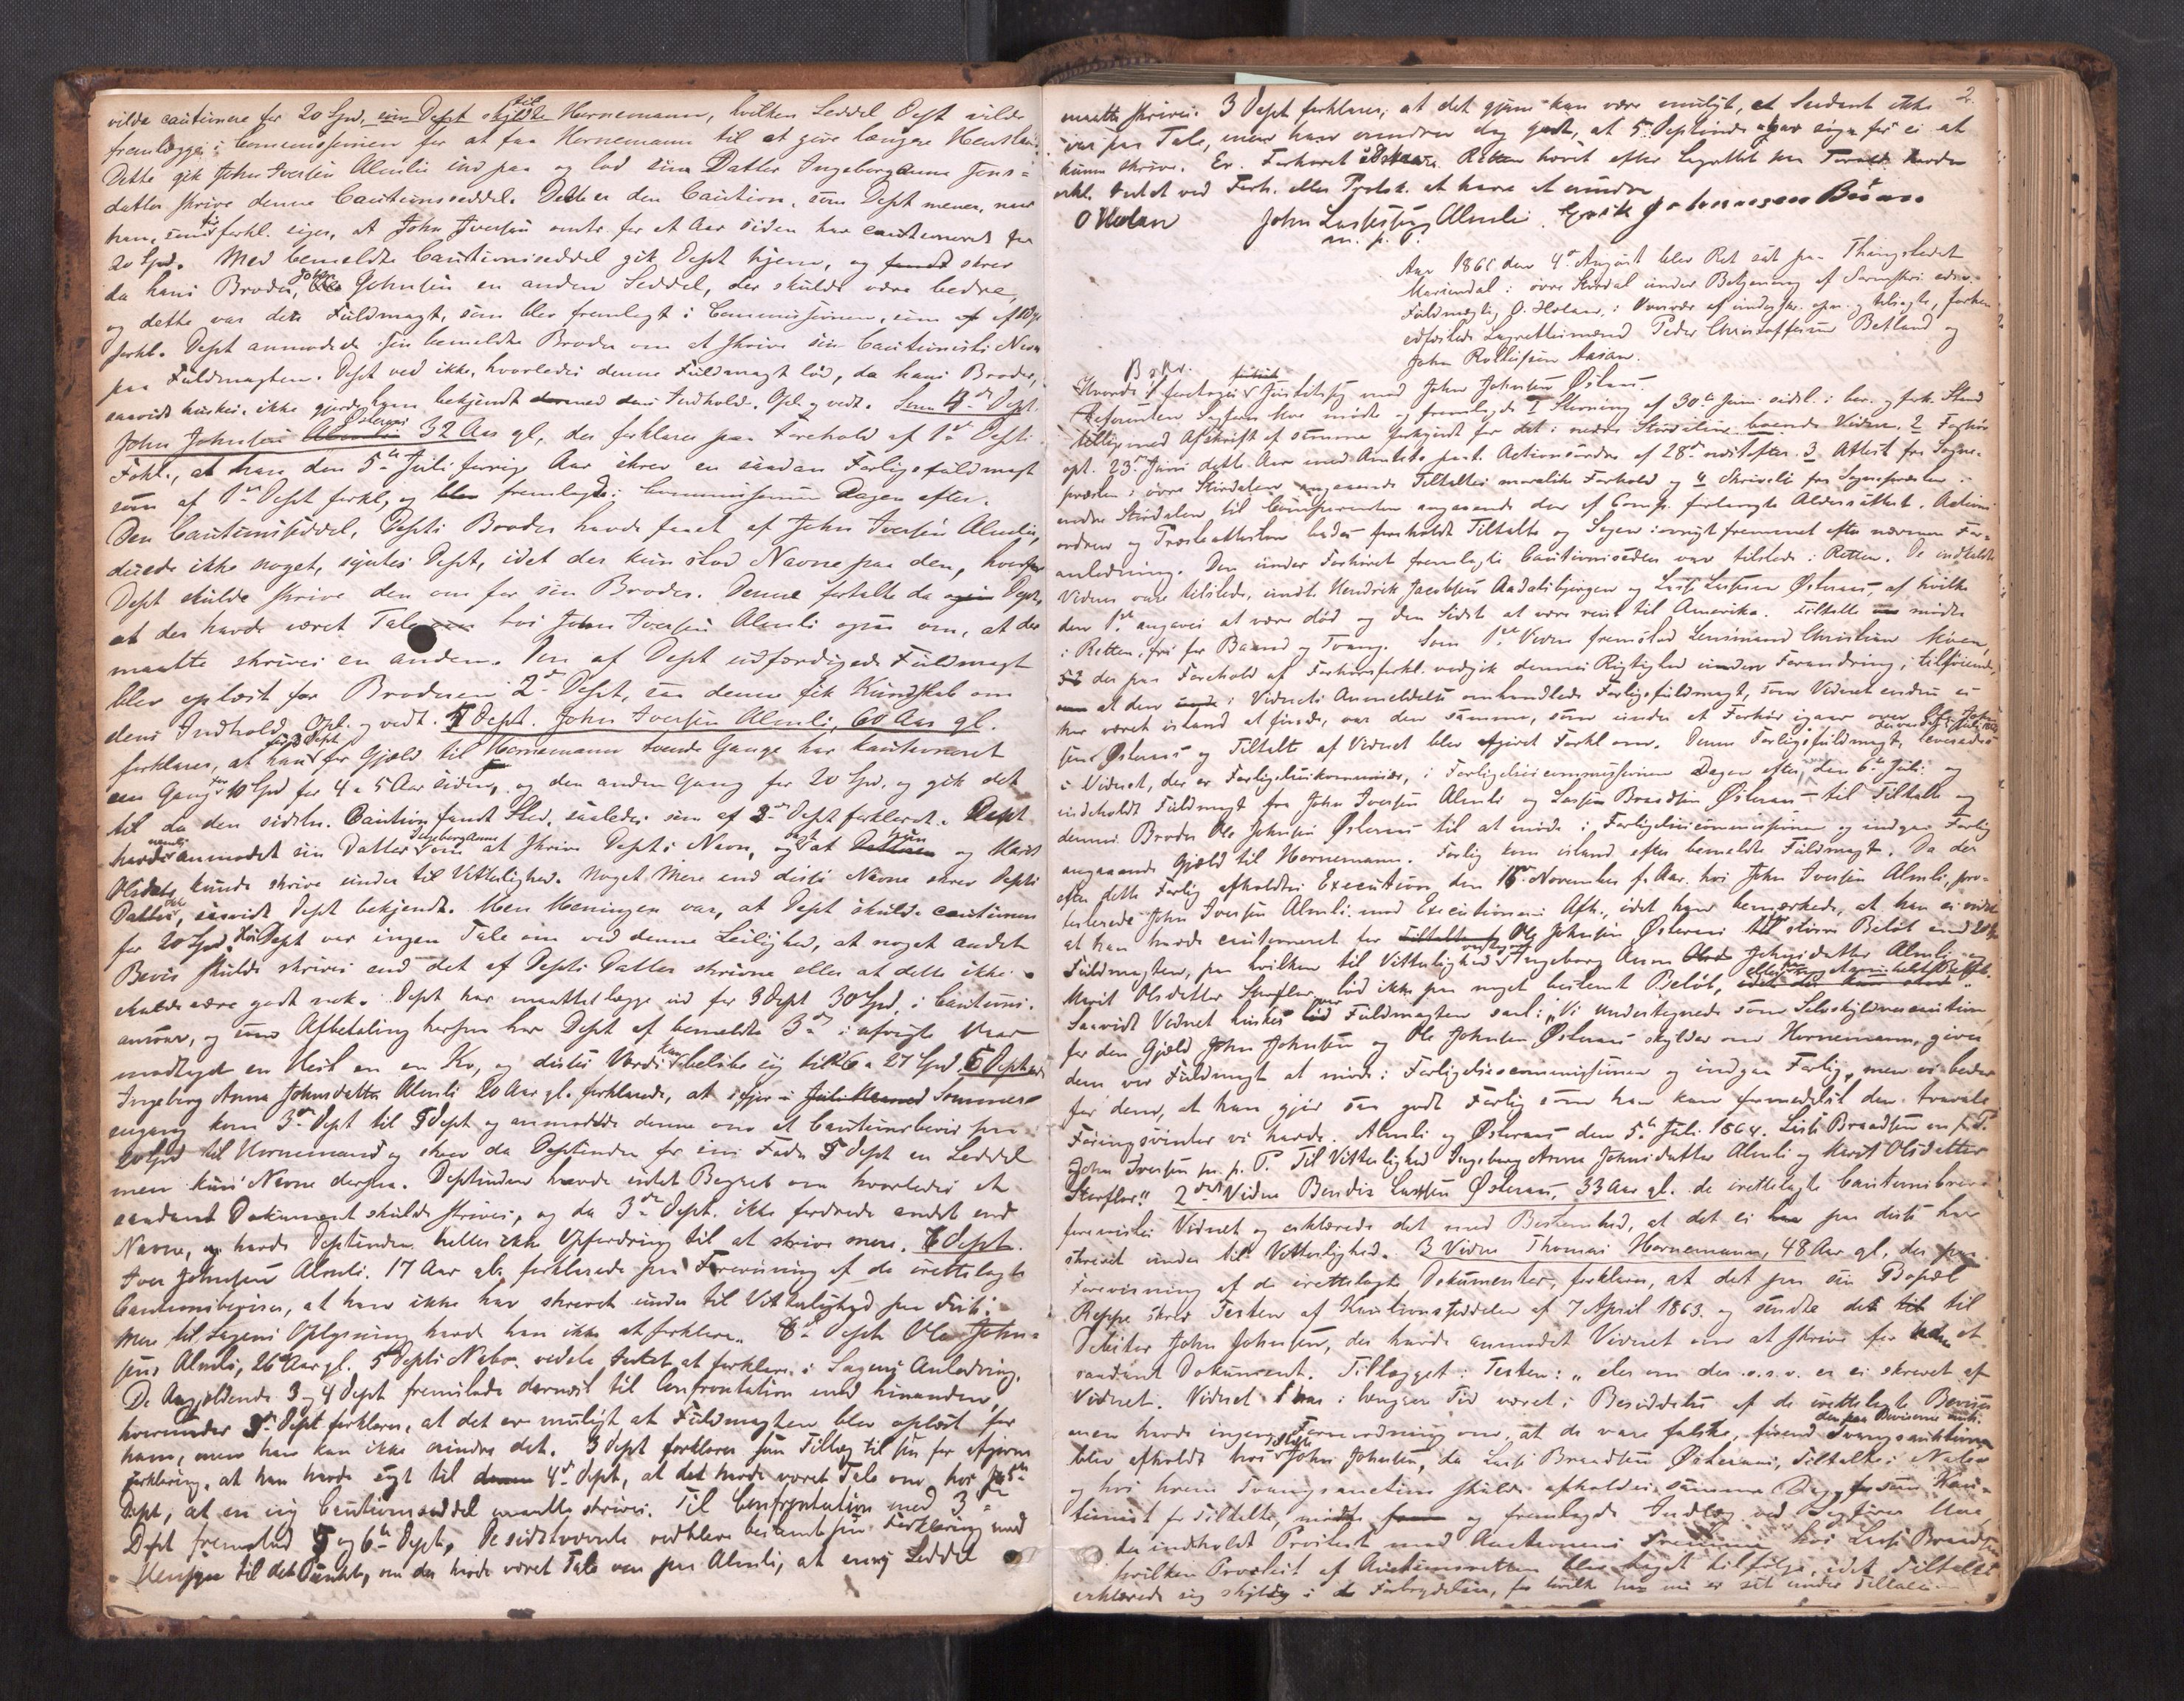 vilde cautionere for 20 Spd, som Dept skyldte til Hornemann, hvilken Seddel Dept vilde
fremlægge i Commissionen for at faa Hornemann til at give længere Henstand.
Dette gik John Iversen Almli ind paa og lod sin Datter Ingeborganna Johns-
datter skrive denne Cautionsseddel. Dette er den Caution, som Dept mener, naar
han, siger, at John Iversen omtr. for et Aar siden har cautioneret for
20 Spd. Med bemeldte Cautionsseddel gik Dept hjem, og skrev
da hans Broder, John Johnsen en anden Seddel, der skulde være bedre,
og dette var den Fuldmagt, som blev fremlagt i Commissionen, som af
forkl. Dept anmodede sin bemeldte Broder om at skrive sin Cautionists Navn
paa Fuldmagten. Dept ved ikke, hvorledes denne Fuldmagt lød, da hans Broder,
saavidt huskes, ikke gjorde ham bekjendt med dens Indhold. Opl. og vedt. Som 4de Dept.
John Johnsen Østeraas 32 Aar gl., der forklarer paa Forehold af 1ste Depts
Forkl., at han den 5te Juli forrige Aar skrev en saadan Forligsfuldmagt
som af 1ste Dept forkl., og blev fremlagt i Commissionen Dagen efter.
Den Cautionsseddel, Depts Broder havde faaet af John Iversen Almli,
duede ikke noget, syntes Dept, idet der kun stod Navne paa den, hvorfor
Dept skulde skrive den om for sin Broder. Denne fortalte da Dept,
at der havde været Tale hos John Iversen Almli ogsaa om, at der
maatte skrives en anden. Den af Dept udfærdigede Fuldmagt
blev oplæst for Broderen 2den Dept, saa denne fik Kundskab om
dens Indhold. Opl. og vedt. 5 Dept. John Iversen Almli, 60 Aar gl.
forklarer, at han for Gjæld til Hornemann tvende Gange har kautioneret
een Gang for 10 Spd for 4 a 5 Aar siden, og den anden Gang for 20 Spd. og gik det
til da den sidste Caution fandt Sted, saaledes som af 3de Dept forklaret. Dept
havde nemlig anmodet sin Datter Ingeborganna om at skrive Depts Navn, og at hun og Marit
Olsdatter kunde skrive under til Vitterlighed. Noget Mere end disse Navne skrev Depts
Datter ei, saavidt Dept bekjendt. Men Meningen var, at Dept skulde cautionere
for 20 Spd. Hos Dept var ingen Tale om ved denne Leilighed, at noget andet
Bevis skulde skrives end det af Depts Datter skrevne eller at dette ikke
skulde være godt nok. Dept har maattet lægge ud for 3 Dept 30 Spd, i Cautions-
ansvar, og som Afbetaling herpaa har Dept af bemeldte 3de i afvigte Vaar
modtaget en Hest og en Ko, og disses Værdi kan beløbe sig til 26 a 27 Spd. 6 Dept
Ingeborg Anna Johnsdatter Almli 20 Aar gl. forklarede, at ifjor Sommer
engang kom 3de Dept til 5 Dept og anmodede denne om et Cautionsbevis paa
20 Spd til Hornemann og skrev da Deptinden for sin Fader 5 Dept en Seddel
men kun Navne derpaa. Deptinden havde intet Begreb om hvorledes et
saadant Dokument skulde skrives, og da 3de Dept. ikke fordrede andet end
Navne, havde Deptinden heller ikke Opfordring til at skrive mere. 7 Dept.
Iver Johnsen Almli. 17 Aar gl. forklarede paa Forevisning af de irettelagte
Cautionsbeviser, at han ikke har skrevet under til Vitterlighed paa disse.
Mere til Sagens Oplysning havde han ikke at forklare. 8de Dept Ole John-
sen Almli, 26 Aar gl. 5 Depts Nabo. vidste Intet at forklare i Sagens Anledning.
De Angjeldende 3 og 4 Dept fremstode dernæst til Confrontation med hinanden,
hvorunder 3de Dept forklarer, at det er muligt at Fuldmagten blev oplæst for
ham, men han kan ikke mindes det. 3 Dept forklarer som Tillæg til sin før afgivne
Forklaring, at han havde sagt til 4de Dept, at det havde været Tale om, hos 5te
Dept, at en ny Cautionsseddel maatte skrives. Til Confrontation med 3de
Dept fremstod 5 og 6te Dept. De sidstnævnte vedblev bestemt sin Forklaring med
Hensyn til det Punkt, om der havde været Tale om paa Almli, at en ny Seddel
2.
maatte skrives. 3 Dept forklarer, at det gjerne kan være muligt, at Saadant ikke
var paa Tale, men han mindes dog godt, at 5 Deptinde sige før ei at
kunne skrive. Retten hævet efter
Intet ved Forh. eller Protok. at have at erindre
O Holan John Iversen Almli Johnsen
m. p. P.
Aar 1865 den 4de August blev Ret sat paa Thingstedet
Mariendal i øvre Størdal under Betjening af Sorenskri edsv.
Fuldmægtig O. Holan, i Overvær af undertegn. opn. og tilsagte, forhen
edfæstede Laugrettesmænd Peder Christoffersen Betland og
John Rolleifsen Aasan.
Hvorda foretoges Justitssag mod John Johnsen Østeraas.
Referenten mødte og fremlagde 1 Stevning af 30te Juni sidstl. i bør. og fork. Stand
tilligemed Afskrift af samme forkyndt for det i nedre Stördalen boende Vidne. 2 Forhør
opt. 23de Juni dette Aar med Amtets paat. Actionsordre af 28de nestefter. 3 Attest fra Sogne-
præsten i øvre Stördalen angaaende Tiltaltes moralske Forhold og 4 Skrivelse fra Sognepræsten i
nedre Stördalen til Comparenten angaaende den af Comp. forlangte Aldersattest. Actions-
ordren og Præsteattesten bades foreholdt Tiltalte og Sagen iøvrigt fremmet efter nærmere For-
anledning. Den under Forhøret fremlagte Cautionsseddel var tilstede i Retten. De indkaldte
Vidner vare tilstede, undt. Hendrik Jacobsen Aadalsbjergen og Lars Larsen Østeraas, af hvilke
den 1ste angaves at være død og den Sidste at være reist til Amerika. Tiltalte mødte
i Retten, fri for Baand og Tvang. Som 1ste Vidne fremstod Lensmand Christian Moen,
52 der paa Forehold af Forhørsforkl. vedgik dennes Rigtighed uden Forandring, tilføiende,
at den i Vidnets Anmeldelse omhandlede Forligsfuldmagt, som Vidnet endnu ei
har været istand at finde, var den samme, som under et Forhør igaar over John
sen Østeraas og Tiltalte af Vidnet blev afgivet Forkl om. Denne Forligsfuldmagt, leveredes
Vidnet, der er Forligelseskommissær, i Forligelsescommissionen Dagen efter, den 6te Juli og
indeholdt Fuldmagt fra John Iversen Almli og Lars Braadsen Østeraas til Tiltalte og
dennes Broder Ole Johnsen Østeraas til at møde i Forligelsescommissionen og indgaa Forlig
angaaende Gjæld til Hornemann. Forlig kom istand efter bemeldte Fuldmagt. Da der
efter dette Forlig afholdtes Execution den 15de November f. Aar. hos John Iversen Almli, pro-
testerede John Iversen Almli mod Executionens Afh., idet han bemærkede, at han ei vidste
at han havde cautioneret for Ole Johnsen Østeraas til større Beløb end 20 Spd
Fuldmagten, paa hvilken til Vitterlighed Ingeborg Anna Johnsdatter Almli og
Marit Olsdatter Skorflor, lød ikke paa noget bestemt Beløb,
Saavidt Vidnet husker var Fuldmagten saal: „Vi undertegnede som Selvskyldnercautionister
for den Gjæld John Johnsen og Ole Johnsen Østeraas skylder mr Hornemann, giver
dem vor Fuldmagt at møde i Forligelsescommissionen og indgaa Forlig, men vi beder
for dem, at han gjør saa godt Forlig som han kan formedelst den travale
Foringsvinter vi havde. Almli og Østeraas den 5te Juli 1864. Lars Braadsen m. p. P.
John Iversen m. p. P. Til Vitterlighed Ingeborg Anna Johnsdatter Almli og Marit Olsdatter
Skorflor". 2det Vidne Bendix Larssen Østeraas, 33 Aar gl. de irettelagte Cautionsbreve
forevistes Vidnet og erklærede det med Bestemthed, at det ei paa disse har
skrevet under til Vitterlighed. 3 Vidne Thomas Hornemann, 48 Aar gl., der paa
Forevisning af de irettelagte Dokumenter, forklarer, at det paa sin Bopæl
Reppe skrev Texten af Kautionsseddelen af 7 April 1863. og sendte det til
Debitor John Johnsen, der havde anmodet Vidnet om at skrive for ham et
saadant Dokument. Tillægget i Texten: „eler om der o.s.v. er ei skrevet af
Vidnet. Vidnet har i længere Tid været i Besiddelse af de irettelagte Beviser
men havde ingen Formodning om, at de vare falske, førend Tvangsauktion
blev afholdt hos John Johnsen, da Lars Braadsen Østeraas, Tiltaltes Nabo
og hos hvem Tvangsauction skulde afholdes samme Dag som Kau-
tionist for Tiltalte, mødte og fremlagde Indlæg ved Sagfører Moe,
der indeholdt Protest mod Auctionens Fremme hos Lars Braadsen
hvilken Protest af Auctionsretten blev taget tilfølge, idet Tiltalte
erklærede sig skyldig i Forbrydelsen, for hvilke han nu er sat under Tiltale.